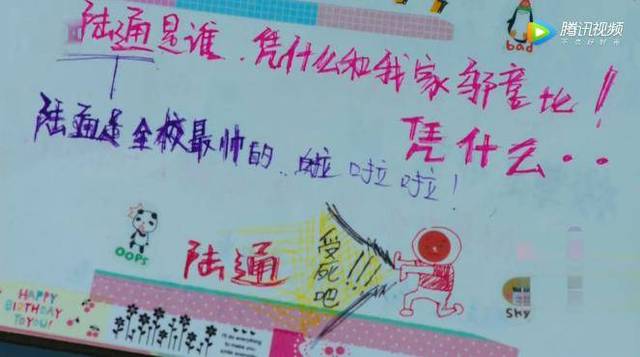 bad
腾讯视频
陆通是谁．凭什么和我家邹童比！
凭什么..
陆通是全校最帅的..啦啦啦！
OOPS
陆通
受死吧!!!
SHY
HAPPY
BIRTHDAY
TO YOU!